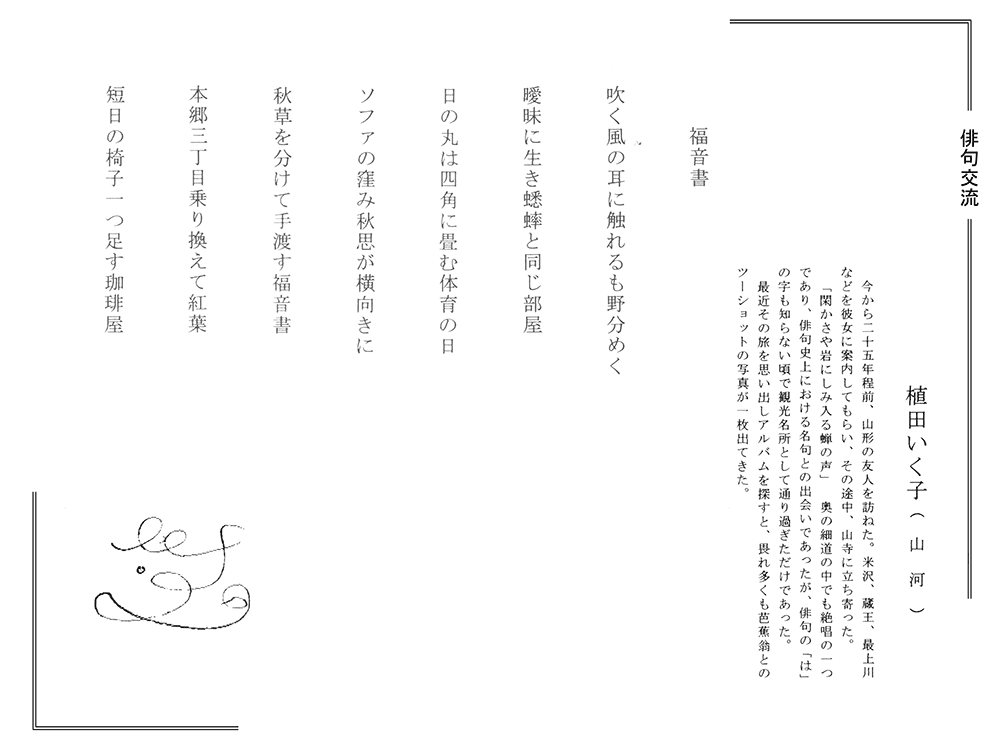 俳句交流
植田いく子（山河）
今から二十五年程前、山形の友人を訪ねた。米沢、蔵王、最上川
などを彼女に案内してもらい、その途中、山寺に立ち寄った。
「閑かさや岩にしみ入る蝉の声」　奥の細道の中でも絶唱の一つ
であり、俳句史上における名句との出会いであったが、俳句の「は」
の字も知らない頃で観光名所として通り過ぎただけであった。
最近その旅を思い出しアルバムを探すと、畏れ多くも芭蕉翁との
ツーショットの写真が一枚出てきた。
福音書
吹く風の耳に触れるも野分めく
曖昧に生き蟋蟀と同じ部屋
日の丸は四角に畳む体育の日
ソファの窪み秋思が横向きに
秋草を分けて手渡す福音書
本郷三丁目乗り換えて紅葉
短日の椅子一つ足す珈琲屋